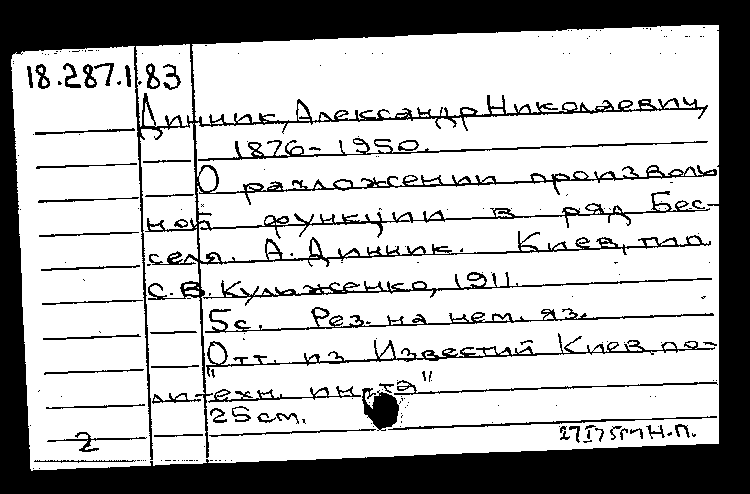 18.287.1.83
Динник, Александр Николаевич,
1876-1950.
О разложении произволь
ной функции в ряд Бес-
селя. А. Динник. Киев, тип.
С. В. Кульженко, 1911.
5с. Рез. на нем. яз.
"Отт. из Известий Киев. по-
литехн. ин-та"
25 см.
2
Н.П.